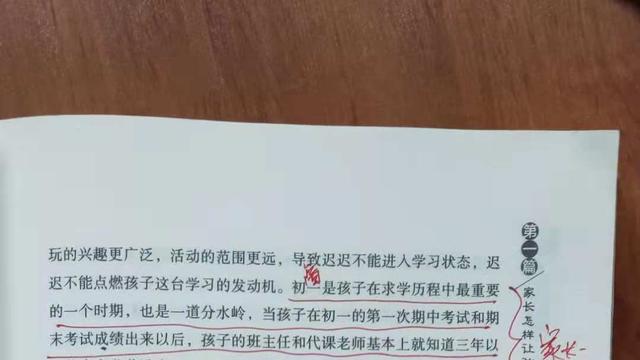 玩的兴趣更广泛，活动的范围更远，导致迟迟不能进入学习状态，迟
迟不能点燃孩子这台学习的发动机。初一是孩子在求学历程中最重要
的一个时期，也是一道分水岭，当孩子在初一的第一次期中考试和期
末考试成绩出来以后，孩子的班主任和代课老师基本上就知道三年以
第一篇
家长怎样让
家长